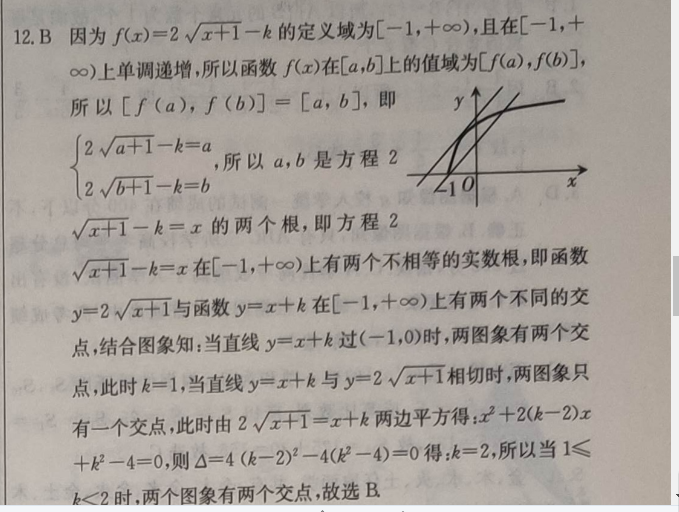 12. B 因为 f(x)=2√(x+1)-k 的定义域为[-1,+∞),且在[-1,+
∞)上单调递增,所以函数 f(x)在[a,b]上的值域为[f(a),f(b)],
所以 [f(a),f(b)]=[a,b],即
{2√(a+1)-k=a
2√(b+1)-k=b
,所以 a,b 是方程 2
√(x+1)-k=x 的两个根,即方程 2
√(x+1)-k=x 在[-1,+∞)上有两个不相等的实数根,即函数
y=2√(x+1)与函数 y=x+k 在[-1,+∞)上有两个不同的交
点,结合图象知:当直线 y=x+k 过(-1,0)时,两图象有两个交
点,此时 k=1,当直线 y=x+k 与 y=2√(x+1)相切时,两图象只
有一个交点,此时由 2√(x+1)=x+k 两边平方得:x²+2(k-2)x
+k²-4=0,则 Δ=4(k-2)²-4(k²-4)=0 得:k=2,所以当 1≤
k<2 时,两个图象有两个交点,故选 B.
y
-1 O x